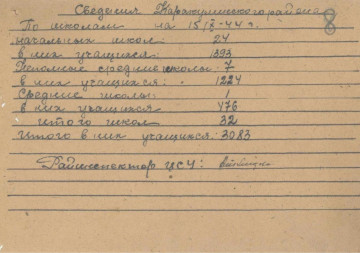 Сведения Каракулинского района
8
По школам на 15/I-44 г.
начальных школ 24
в них учащихся: 1393
Неполные средние школы: 7
в них учащихся: 1224
Средние школы: 1
в них учащихся 476
итого школ 32
итого в них учащихся: 3083
Райинспектор ЦСУ: